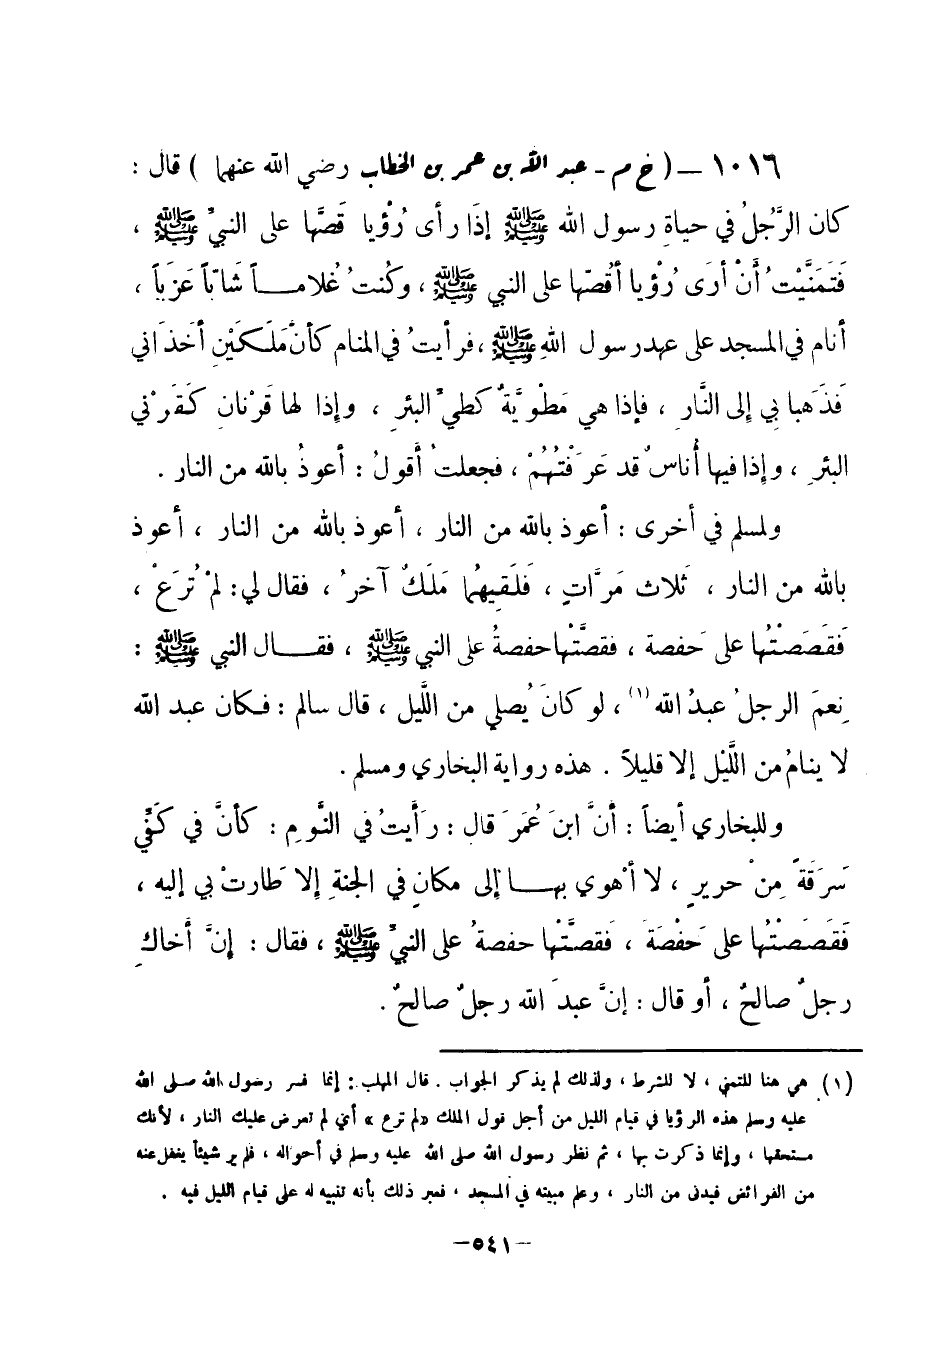 ١٠١٦ — (خ م - عبد الله بن عمر بن الخطاب رضي الله عنهما) قال :
كان الرَّجُلُ في حياةِ رسول الله ﷺ إذَا رأى رُؤيا قَصَّها على النبيِّ ﷺ ،
فَتَمَنَّيْتُ أَنْ أَرَى رُؤيا أَقُصّها على النبي ﷺ ، وكُنتُ غُلاماً شَابّاً عَزَباً ،
أنام في المسجد على عهد رسول اللهِ ﷺ ، فرأيتُ في المنام كأنَّ مَلَكَيْنِ أَخَذَاني
فَذَهَبا بي إلى النَّارِ ، فإذا هي مَطْوِيَّةٌ كطيِّ البئرِ ، وإذا لها قَرْنانِ كَقَرْني
البئرِ ، وإذا فيها أُناسٌ قد عَرَفْتُهُمْ ، فجعلتُ أَقولُ : أعوذُ بالله من النار .
ولمسلم في أخرى : أعوذ بالله من النار ، أعوذ بالله من النار ، أعوذ
بالله من النار ، ثَلاث مَرَّاتٍ ، فَلَقِيَهُما مَلَكٌ آخرُ ، فقال لي : لمْ تُرَعْ ،
فَقَصَصْتُها على حَفصة ، فقصَّتْها حفصةُ على النبي ﷺ ، فقال النبي ﷺ :
نِعمَ الرجلُ عبدُ الله (١) ، لو كانَ يُصلي من اللَّيل ، قال سالم : فكان عبد الله
لا ينامُ من اللَّيْل إلا قليلاً . هذه رواية البخاري ومسلم .
وللبخاري أيضاً : أنَّ ابنَ عُمَرَ قال : رَأَيتُ في النَّومِ : كأنَّ في كَفِّي
سَرَقَةً مِنْ حريرٍ ، لا أَهْوي بها إلى مكانٍ في الجنةِ إلا طارتْ بي إليه ،
فَقَصَصْتُها على حَفْصَةَ ، فَقصَّتْها حفصةُ على النبيِّ ﷺ ، فقال : إنَّ أَخاكِ
رجلٌ صالحٌ ، أو قال : إنَّ عبدَ الله رجلٌ صالحٌ .
(١) هي هنا للتمني ، لا للشرط ، ولذلك لم يذكر الجواب . قال المهلب : إنما فسر رسول الله صلى الله
عليه وسلم هذه الرؤيا في قيام الليل من أجل قول الملك «لم ترع » أي لم تعرض عليك النار ، لأنك
مستحقها ، وإنما ذكرت بها ، ثم نظر رسول الله صلى الله عليه وسلم في أحواله ، فلم ير شيئاً يغفل عنه
من الفرائض فيدنى من النار ، وعلم مبيته في المسجد ، فعبر ذلك بأنه تنبيه له على قيام الليل فيه .
— ٥٤١ —